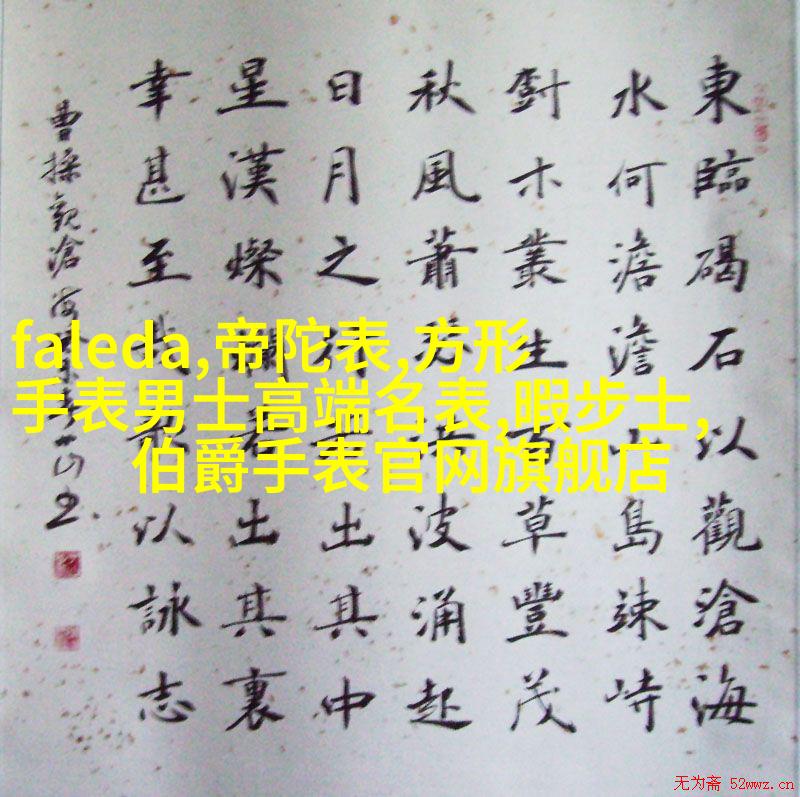 faleda,帝陀表,方形
手表男士高端名表,暇步士,
伯爵手表官网旗舰店
東臨碣石以觀滄海
水何澹澹山島竦峙
尌木叢生百草豐茂
秋風蕭瑟洪波涌起
日月之行若出其中
星漢燦爛若出其裏
幸甚至哉歌以詠志
曹操觀滄海
无为斋 52wwz.cn